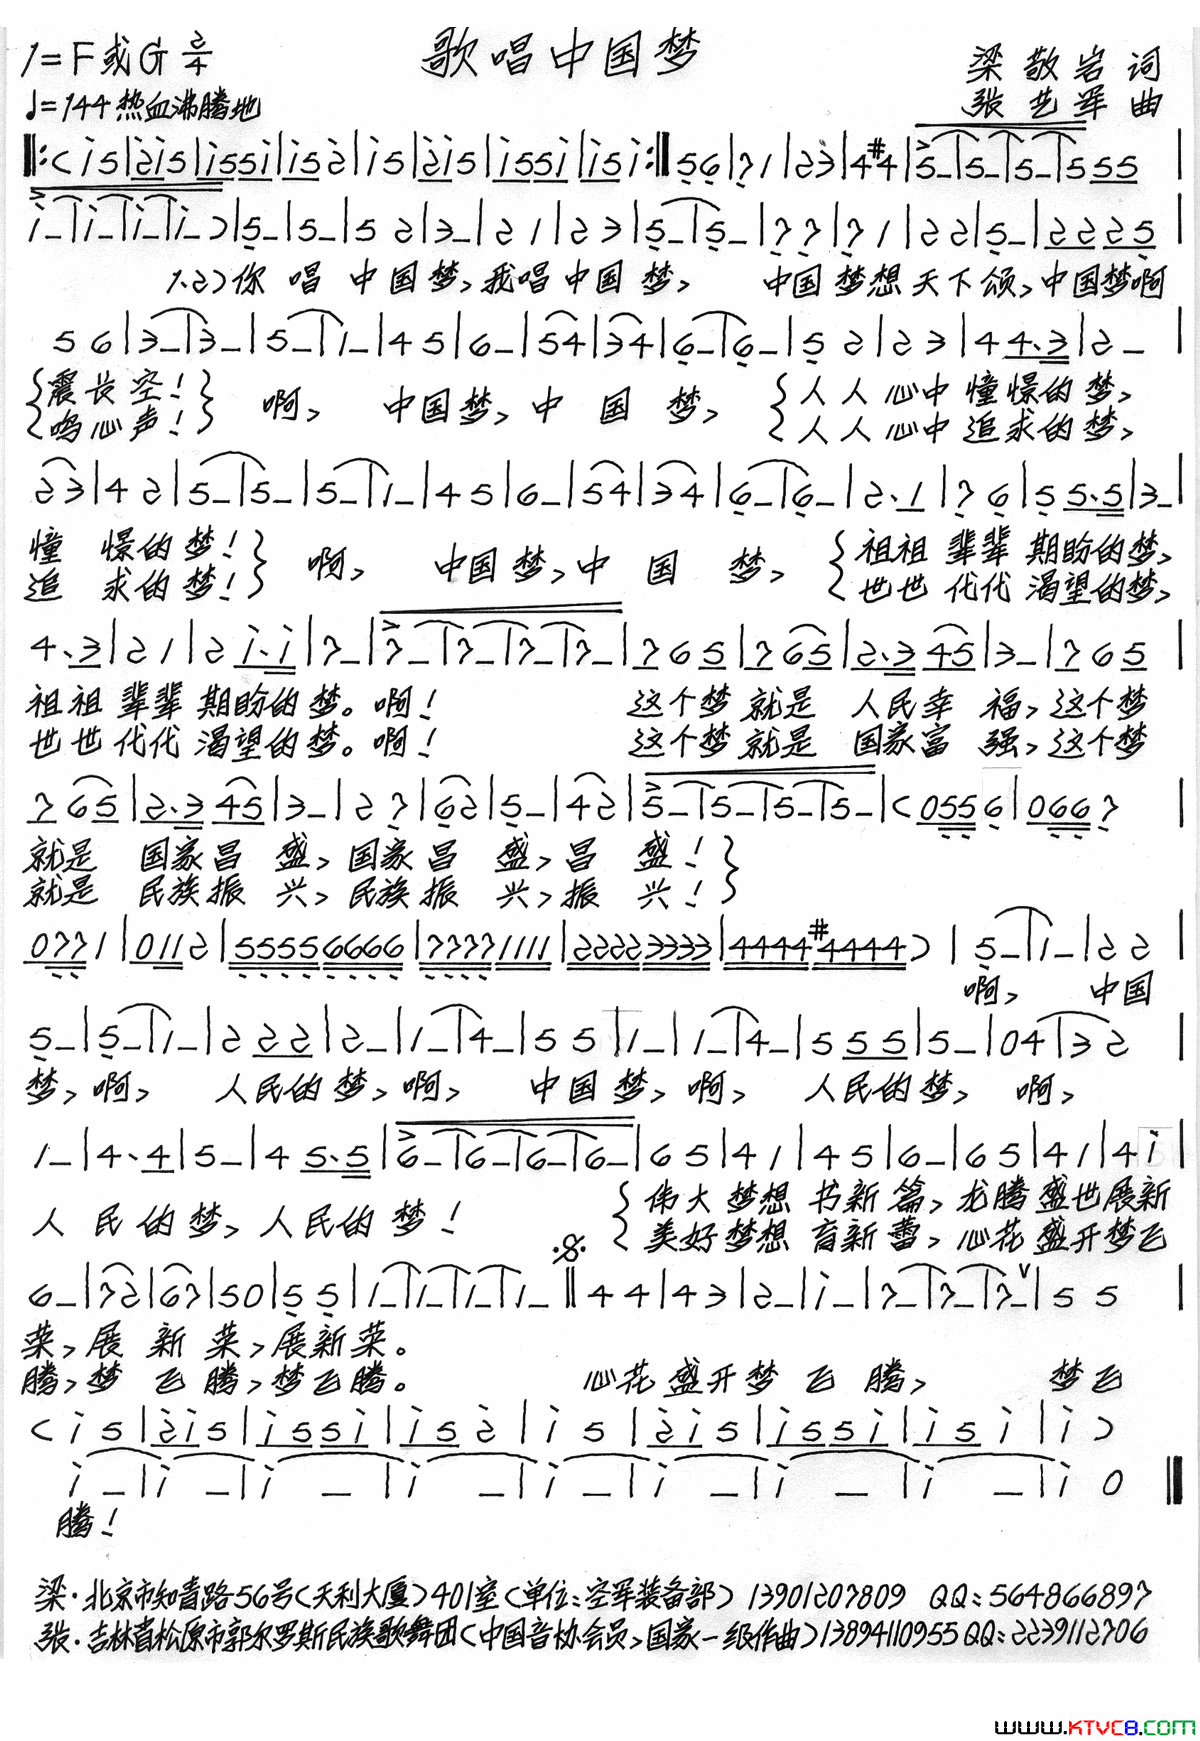 歌唱中国梦
1=F或G 2/4
梁敬岩 词
♩=144 热血沸腾地
张艺军 曲
‖:(i5|2i5|i55i|i52|i5|2i5|i55i|i5i:‖56|71|23|4#4|5_|5_|5_|555|
i_|i_|i_|i_)|5_|5_|52|3_|21|23|5_|5_|77|71|22|5_|2225|
1.2)你唱中国梦,我唱中国梦, 中国梦想天下颂,中国梦啊
56|3_|3_|5_|1_|45|6_|54|34|6_|6_|52|23|44.3|2_|
震长空! 啊, 中国梦,中国梦, 人人心中憧憬的梦,
鸣心声! 人人心中追求的梦,
23|42|5_|5_|5_|1_|45|6_|54|34|6_|6_|2.1|76|55.5|3_|
憧憬的梦! 啊, 中国梦,中国梦, 祖祖辈辈期盼的梦,
追求的梦! 世世代代渴望的梦,
4.3|21|2i.i|7_|7_|7_|7_|7_|765|765|2.345|3_|765|
祖祖辈辈期盼的梦。啊! 这个梦就是人民幸福,这个梦
世世代代渴望的梦。啊! 这个梦就是国家富强,这个梦
765|2.345|3_|27|62|5_|42|5_|5_|5_|5_|(0556|0667|
就是国家昌盛,国家昌盛,昌盛!
就是民族振兴,民族振兴,振兴!
0771|0112|55556666|77771111|22223333|4444#4444)|5_|1_|22
啊, 中国
5_|5_|1_|222|2_|1_|4_|55|1_|1_|4_|555|5_|04|32|
梦,啊, 人民的梦,啊, 中国梦,啊, 人民的梦, 啊,
1_|4.4|5_|45.5|6_|6_|6_|6_|65|41|45|6_|65|41|4i
人民的梦,人民的梦! 伟大梦想书新篇,龙腾盛世展新
美好梦想育新蕾,心花盛开梦飞
6_|72|67|50|55|1_|1_|1_|1_‖44|43|2_|i_|7_|7_|7_|55|
菜,展新菜,展新菜。
腾,梦飞腾,梦飞腾。 心花盛开梦飞腾, 梦飞
(i5|2i5|i55i|i52|i5|2i5|i55i|i5i|i)
i_|i_|i_|i_|i_|i_|i_|i_|i0‖
腾!
梁·北京市知春路56号(天利大厦)401室(单位:空军装备部) 13901207809 QQ:564866897
张·吉林省松原市郭尔罗斯民族歌舞团(中国音协会员,国家一级作曲)13894110955 QQ:2239112706
www.KTVC8.com